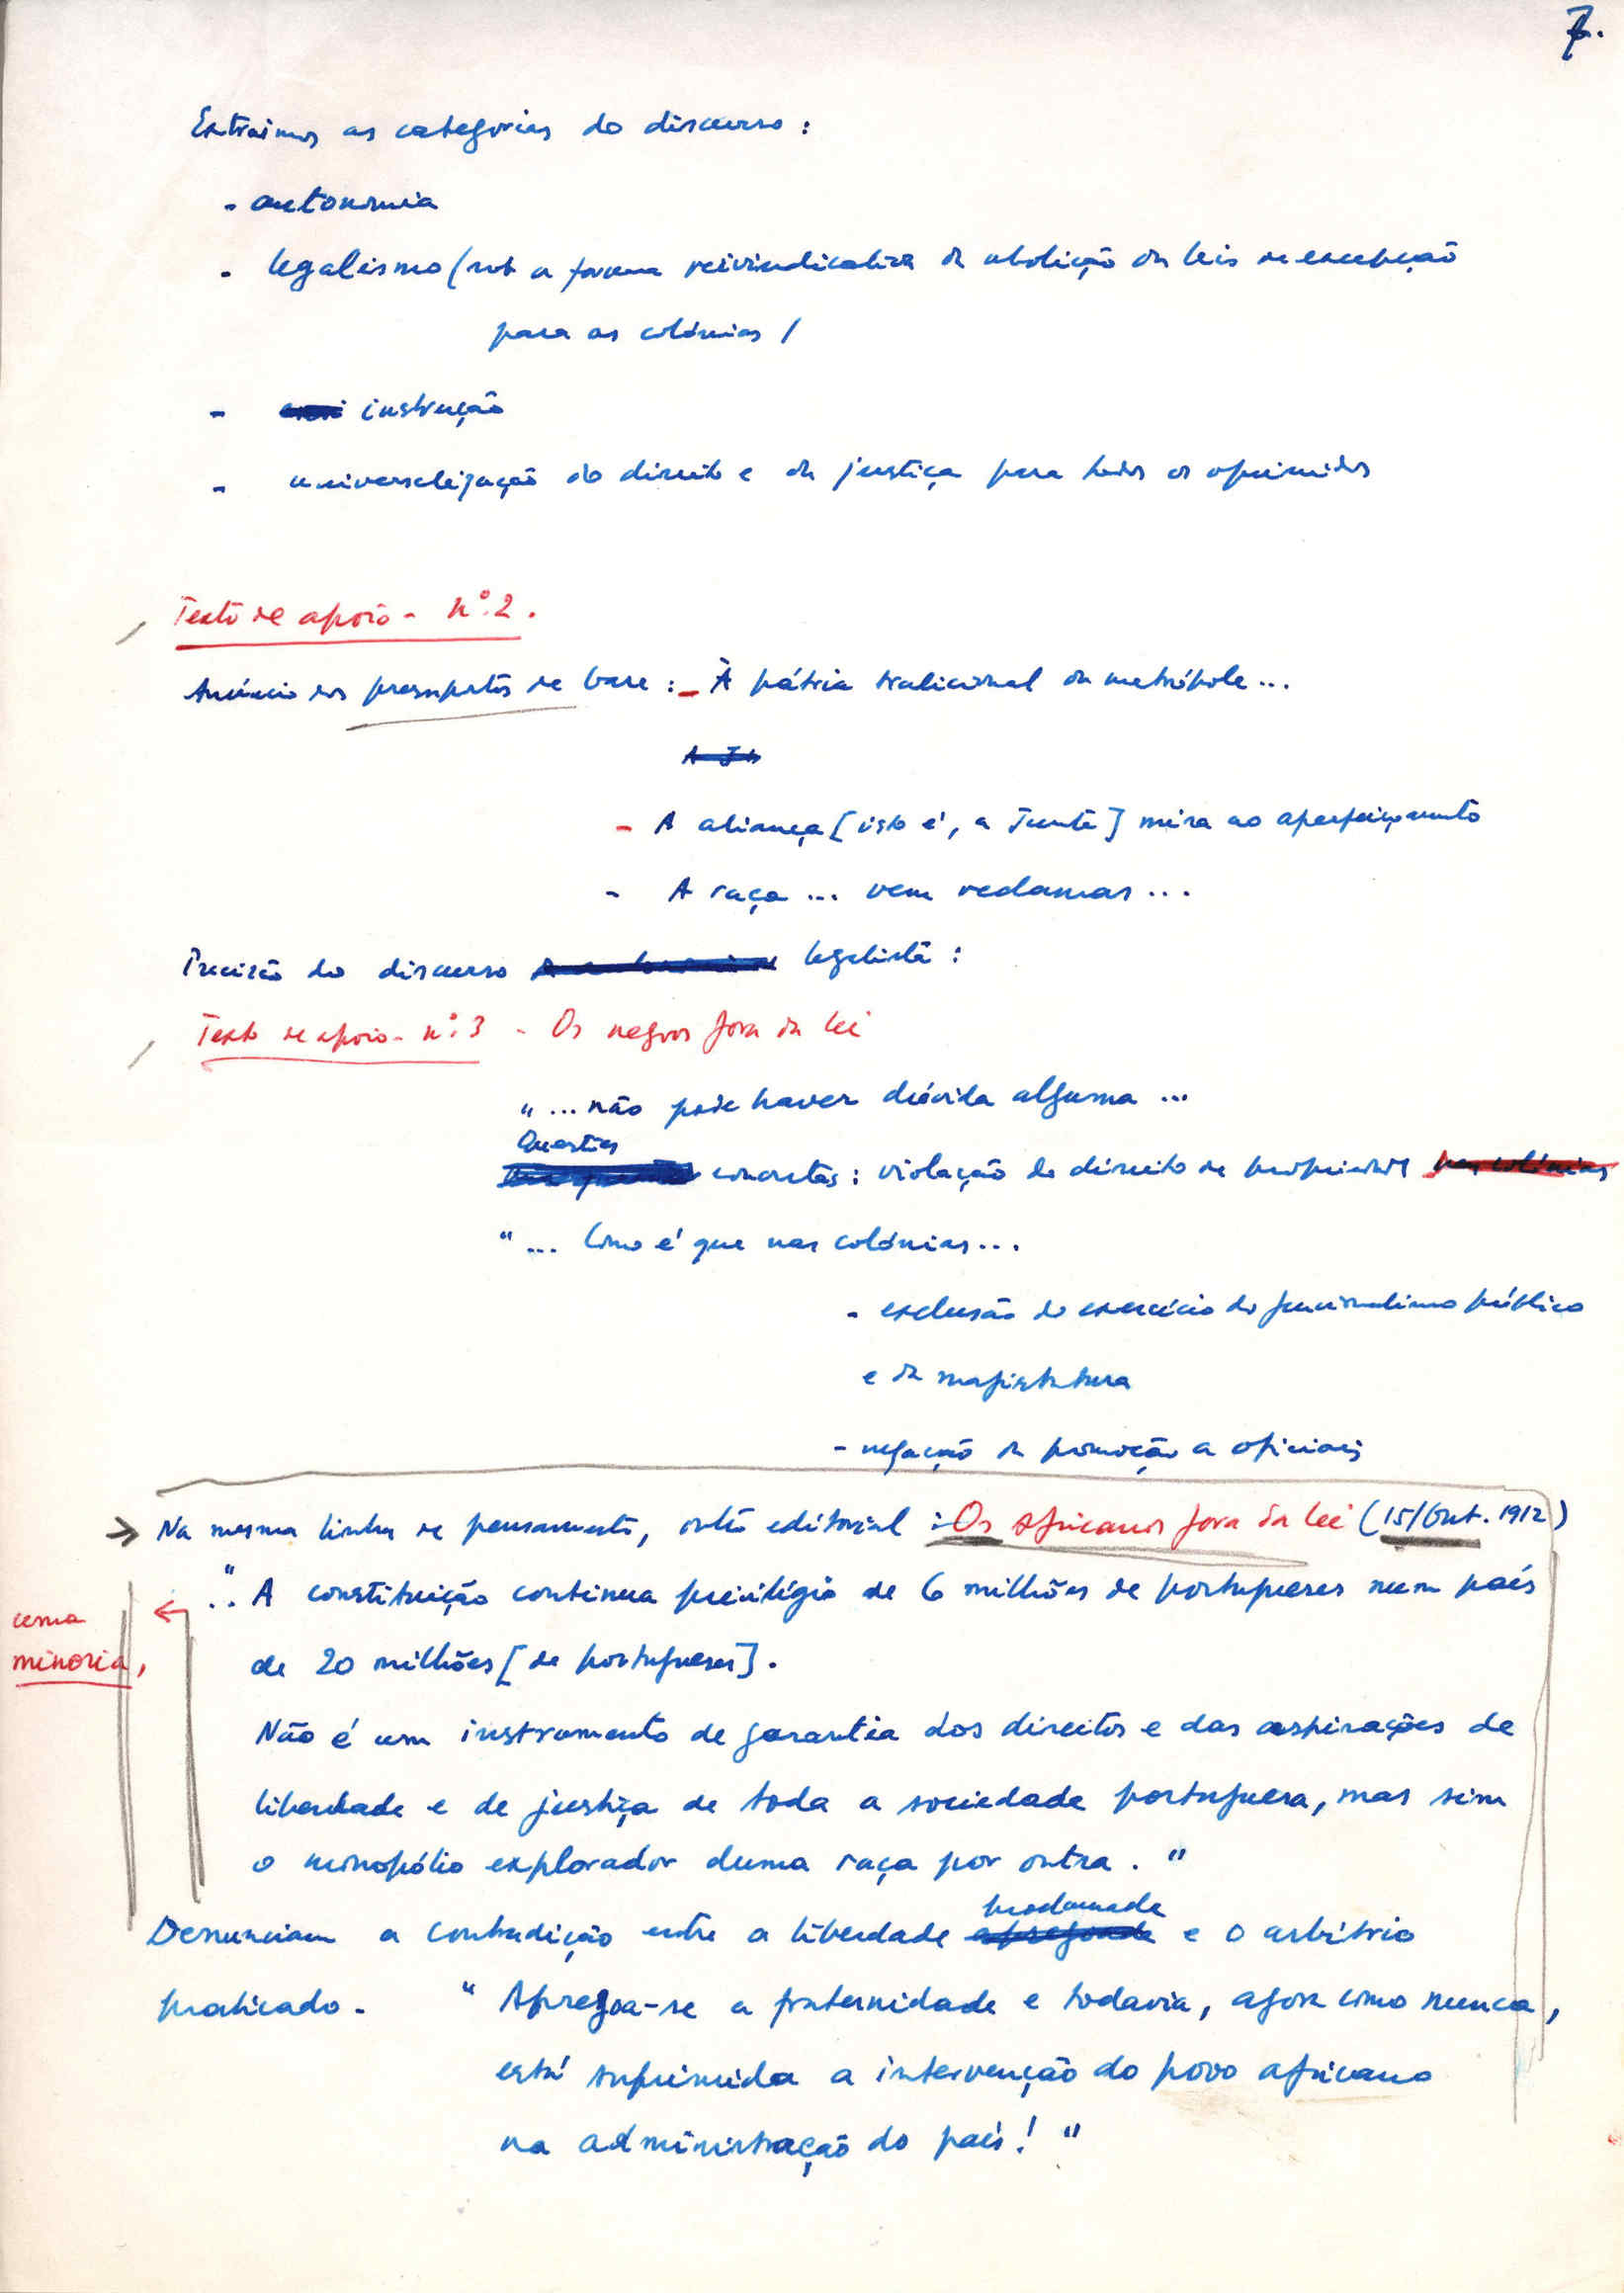 7.
Extraímos as categorias do discurso :
- autonomia
- legalismo (sob a forma reivindicativa da abolição das leis de excepção
para as colónias /
- instrução
- universalização do direito e da justiça para todos os oprimidos
Texto de apoio - nº. 2.
Anúncio dos pressupostos de base : - À pátria tradicional da metrópole ...
A Ju
- A aliança [isto é, a Junta] mira ao aperfeiçoamento
- A raça ... vem reclamar ...
Precisão do discurso legalista :
Texto de apoio - nº. 3 - Os negros fora da lei
" ... não pode haver dúvida alguma ...
Questões
concretas : violação do direito de propriedade nas colónias
" ... Como é que nas colónias ...
- exclusão do exercício do funcionalismo público
e da magistratura
- negação da promoção a oficiais
→ Na mesma linha de pensamento, outro editorial : Os Africanos fora da lei (15/Out. 1912)
".. A constituição continua privilégio de 6 milhões de portugueses num país
uma
minoria,
de 20 milhões [de portugueses].
Não é um instrumento de garantia dos direitos e das aspirações de
liberdade e de justiça de toda a sociedade portuguesa, mas sim
o monopólio explorador duma raça por outra. "
proclamada
Denunciam a contradição entre a liberdade apregoada e o arbítrio
praticado. " Apregoa-se a fraternidade e todavia, agora como nunca,
está suprimida a intervenção do povo africano
na administração do país ! "